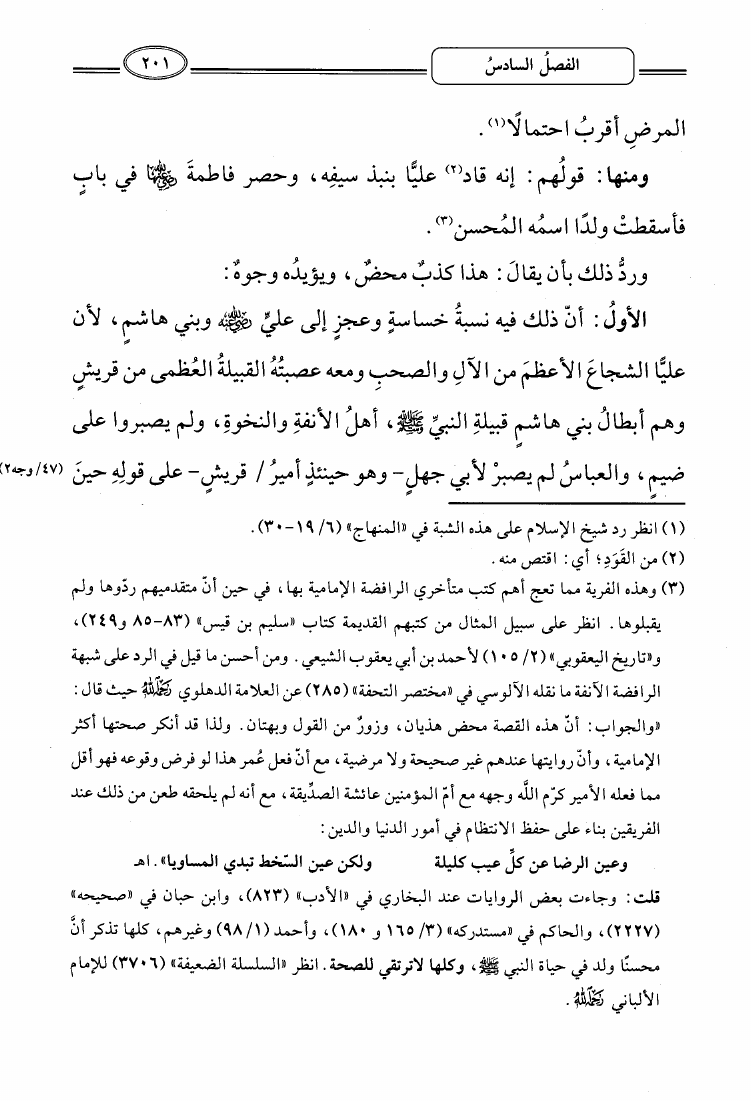 الفصلُ السادسُ
٢٠١
المرضِ أقربُ احتمالًا(١).
ومنها: قولُهم: إنه قاد(٢) عليًّا بنبذ سيفِه، وحصر فاطمةَ رضي الله عنها في بابٍ
فأسقطتْ ولدًا اسمُه المُحسن(٣).
وردُّ ذلك بأن يقالَ: هذا كذبٌ محضٌ، ويؤيدُه وجوهٌ:
الأولُ: أنّ ذلك فيه نسبةُ خساسةٍ وعجزٍ إلى عليٍّ رضي الله عنه وبني هاشمٍ، لأن
عليًّا الشجاعَ الأعظمَ من الآلِ والصحبِ ومعه عصبتُهُ القبيلةُ العُظمى من قريشٍ
وهم أبطالُ بني هاشمٍ قبيلةِ النبيِّ ﷺ، أهلُ الأنفةِ والنخوةِ، ولم يصبروا على
ضيمٍ، والعباسُ لم يصبرْ لأبي جهلٍ- وهو حينئذٍ أميرُ/ قريشٍ- على قولِهِ حينَ (٤٧/وجه٢)
(١) انظر رد شيخ الإسلام على هذه الشبة في «المنهاج» (٦/ ١٩-٣٠).
(٢) من القَوَدِ؛ أي: اقتص منه.
(٣) وهذه الفرية مما تعج أهم كتب متأخري الرافضة الإمامية بها، في حين أنّ متقدميهم ردّوها ولم
يقبلوها. انظر على سبيل المثال من كتبهم القديمة كتاب «سليم بن قيس» (٨٣-٨٥ و٢٤٩)،
و«تاريخ اليعقوبي» (٢/ ١٠٥) لأحمد بن أبي يعقوب الشيعي. ومن أحسن ما قيل في الرد على شبهة
الرافضة الآنفة ما نقله الآلوسي في «مختصر التحفة» (٢٨٥) عن العلامة الدهلوي رحمه الله حيث قال:
«والجواب: أنّ هذه القصة محض هذيان، وزورٌ من القول وبهتان. ولذا قد أنكر صحتها أكثر
الإمامية، وأنّ روايتها عندهم غير صحيحة ولا مرضية، مع أنّ فعل عُمر هذا لو فرض وقوعه فهو أقل
مما فعله الأمير كرّم اللَّه وجهه مع أمّ المؤمنين عائشة الصدِّيقة، مع أنه لم يلحقه طعن من ذلك عند
الفريقين بناء على حفظ الانتظام في أمور الدنيا والدين:
وعين الرضا عن كلِّ عيب كليلة ولكن عين السّخط تبدي المساويا». اهـ
قلت: وجاءت بعض الروايات عند البخاري في «الأدب» (٨٢٣)، وابن حبان في «صحيحه»
(٢٢٢٧)، والحاكم في «مستدركه» (٣/ ١٦٥ و ١٨٠)، وأحمد (١/ ٩٨) وغيرهم، كلها تذكر أنَّ
محسنًا ولد في حياة النبي ﷺ، وكلها لاترتقي للصحة. انظر «السلسلة الضعيفة» (٣٧٠٦) للإمام
الألباني رحمه الله.